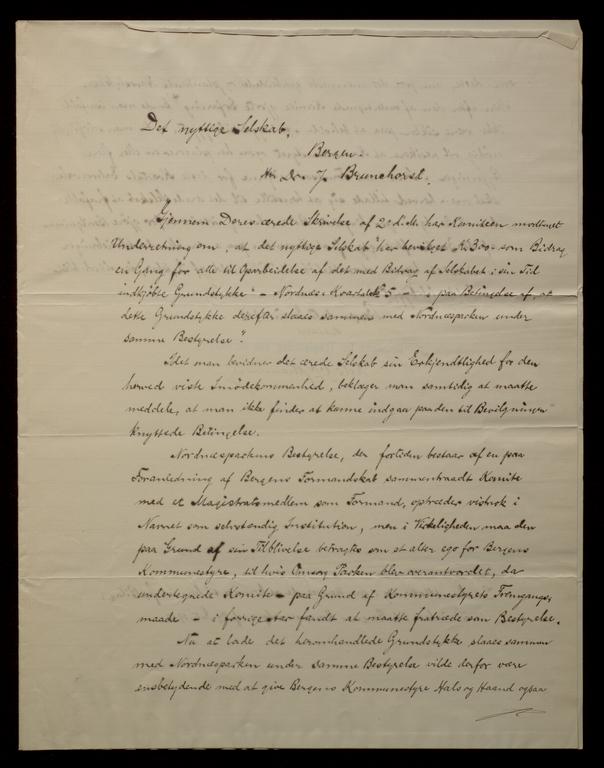 Det nyttige Selskab,
Bergen.
Hr. Dr. J. Brunchorst.
Gjennem Deres ærede Skrivelse af 2 d.M. har Komiteen modtaget
Underretning om, at det nyttige Selskab "har bevilget Kr. 300 som Bidrag
en Gang for alle til Oparbeidelse af det med Bidrag af Selskabet i sin Tid
indkjøbte Grundstykke" - Nordnæs Kvartal № 5 - paa Betingelse af, at
dette Grundstykke derefter slaaes sammen med Nordnæsparken under
samme Bestyrelse".
Idet man bevidner det ærede Selskab sin Erkjendtlighed for den
herved viste Imødekommenhed, beklager man samtidig at maatte
meddele, at man ikke finder at kunne indgaa paa den til Bevilgningen
knyttede Betingelse.
Nordnæsparkens Bestyrelse, der fortiden bestaar af en paa
Foranledning af Bergens Formandskab sammentraadt Komite
med et Magistratsmedlem som Formand, optræder vistnok i
Navnet som selvstændig Institution, men i Virkeligheden maa den
paa Grund af sin Tilblivelse betragtes som et alter ego for Bergens
Kommunestyre, til hvis Omsorg Parken blev overantvordet, da
undertegnede Komite - paa Grund af Kommunestyrets Fremgangs-
maade - i forrige Aar fandt at maatte fratræde som Bestyrelse.
Nu at lade det heromhandlede Grundstykke slaaes sammen
med Nordnæsparken under samme Bestyrelse vilde derfor være
ensbetydende med at give Bergens Kommunestyre Hals og Haand ogsaa